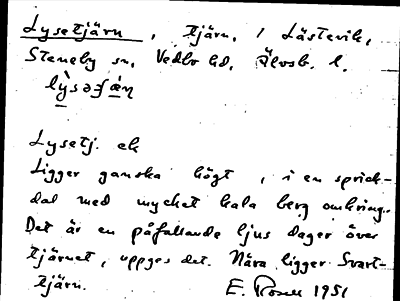 Lysetjärn, tjärn, i Låstevik,
Steneby sn, Vedbo hd, Älvsb. l.
Lysetj. ek
Ligger ganska högt, i en sprick-
dal med mycket kala berg omkring.
Det är en påfallande ljus dager över
tjärnet, uppges det. Nära ligger Svart-
tjärn. E. 1951